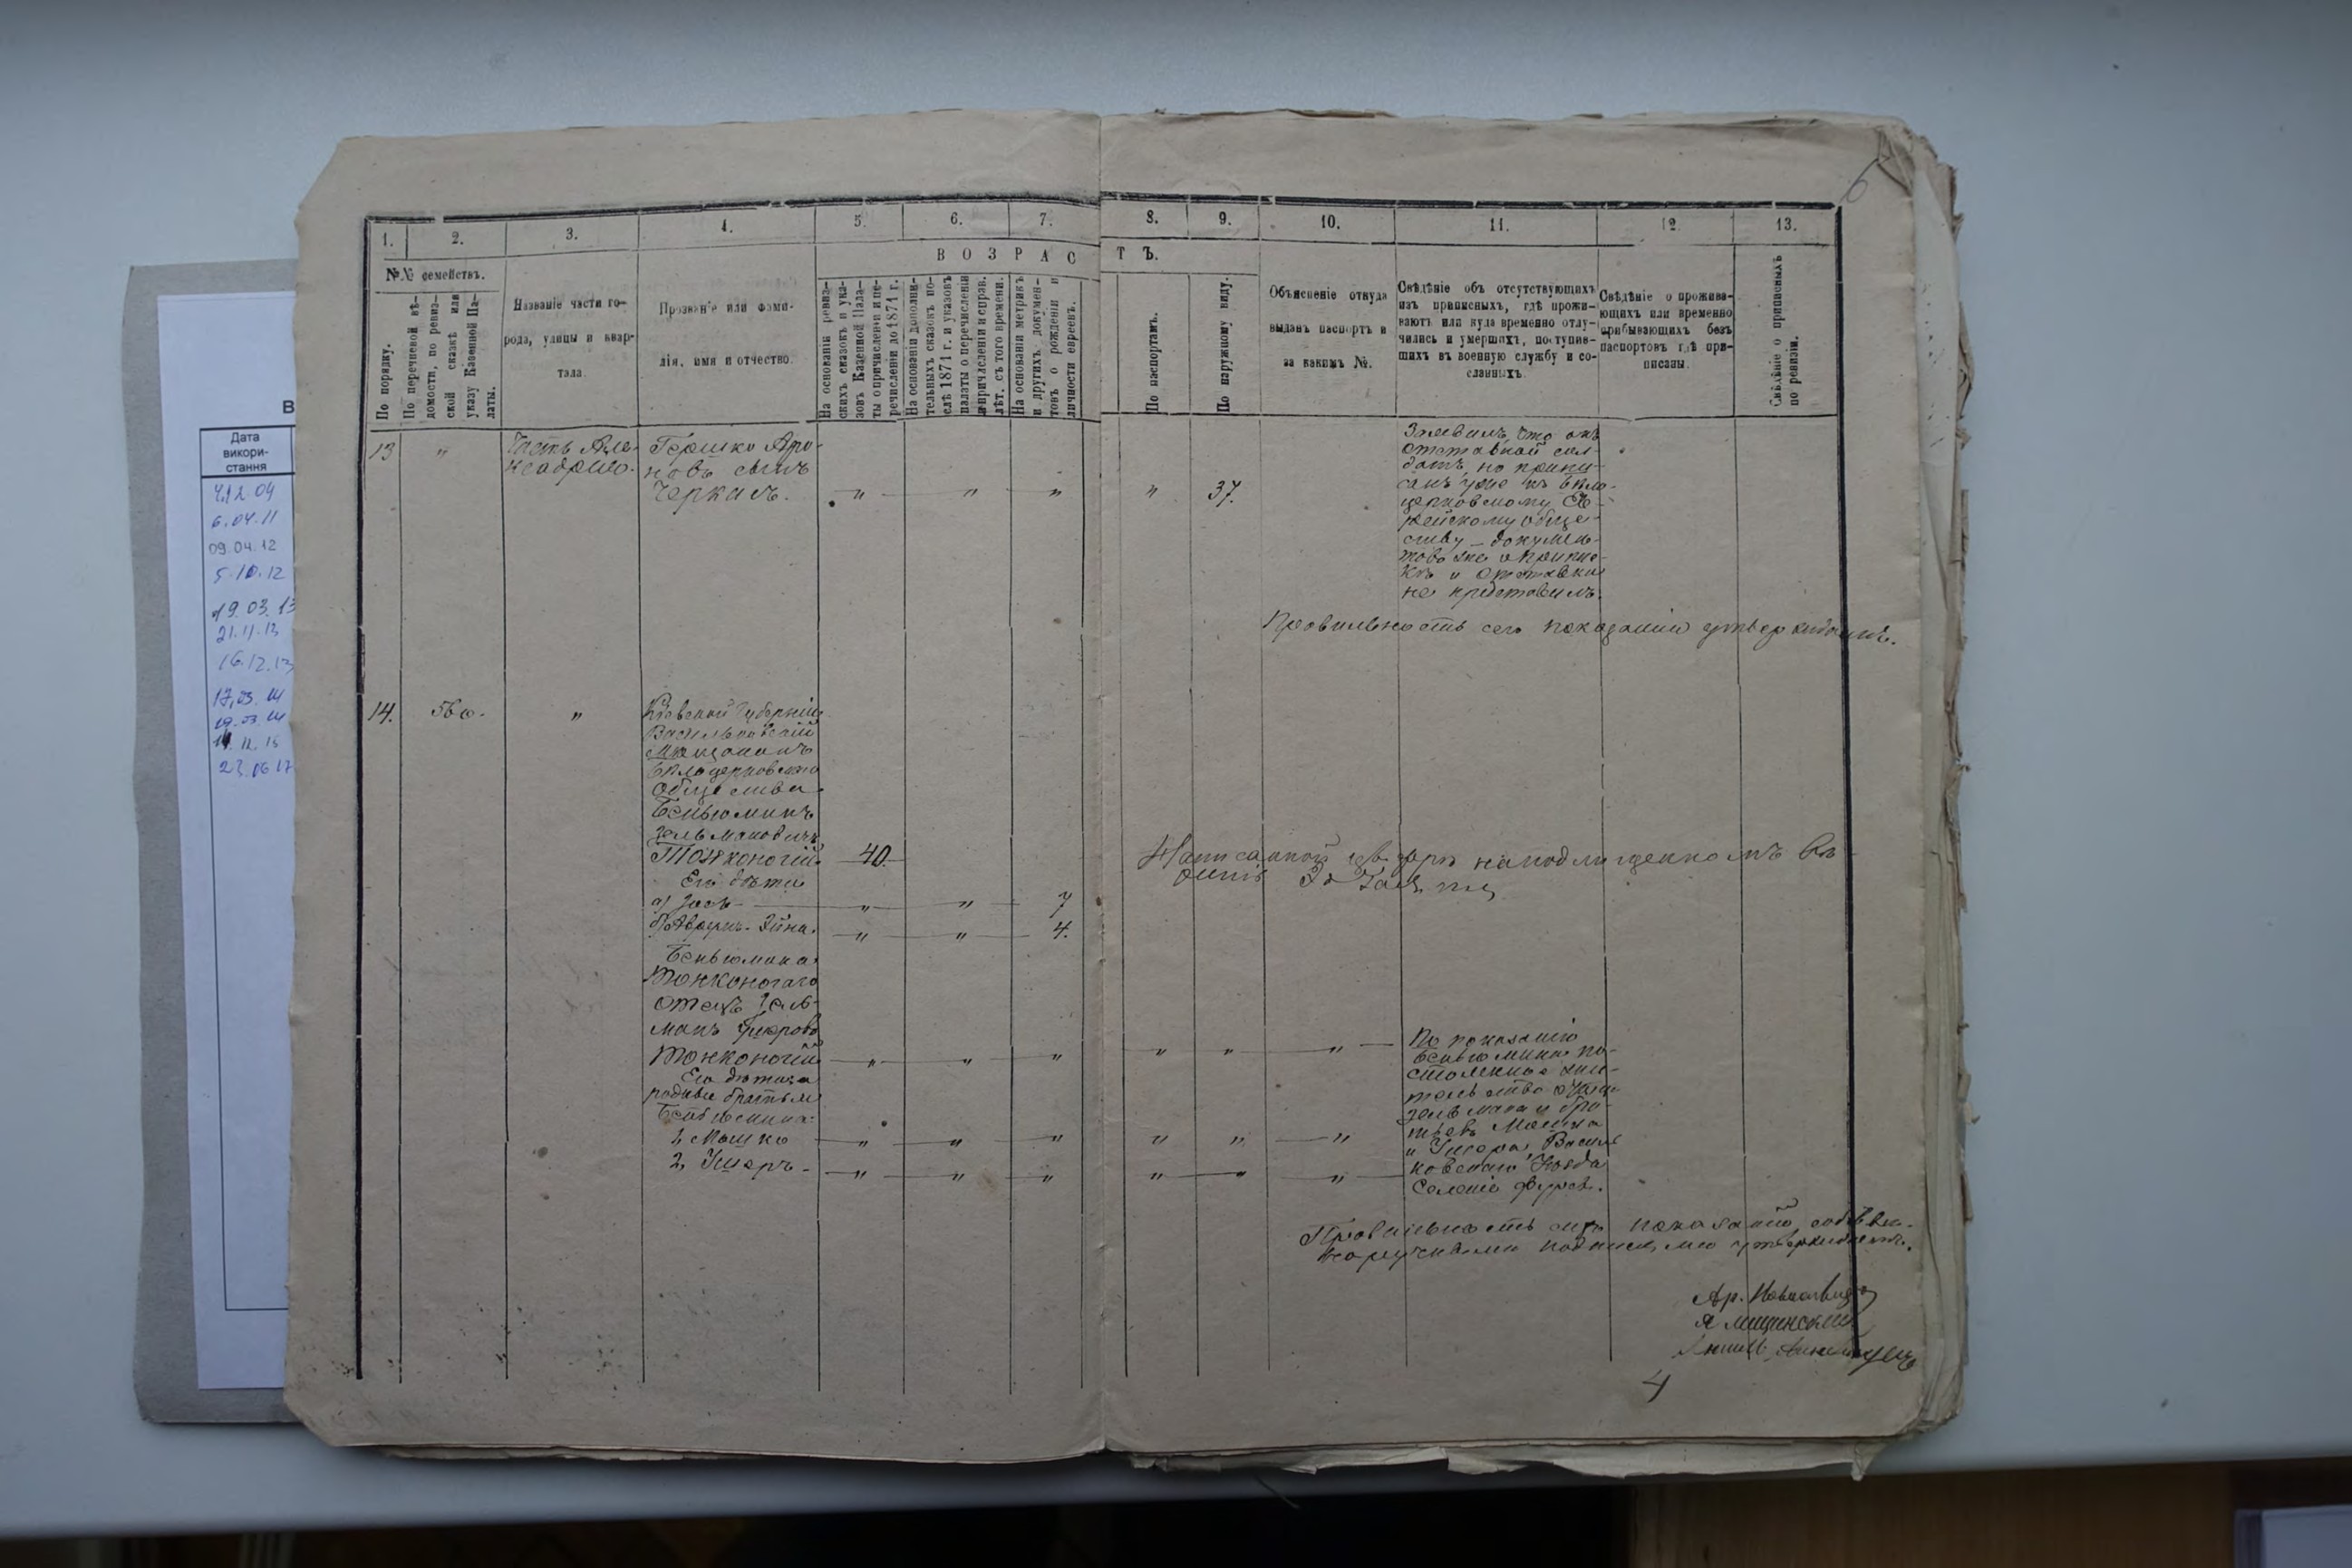 В
Дата
викори-
стання
4.12.04
6.04.11
09.04.12
5.10.12
19.03.13
21.11.13
16.12.13
17.03.14
19.03.14
23.06.17
6
1.
2.
3.
4.
5.
6.
7.
8.
9.
10.
11.
12.
13.
№№ семействъ.
ВОЗРАС
ТЪ.
По порядку.
По перечневой вѣ-
домости, по ревиз-
ской сказкѣ или
указу Казенной Па-
латы.
Названіе части го-
рода, улицы и квар-
тала.
Прозваніе или фами-
лія, имя и отчество.
На основаніи ревиз-
скихъ сказокъ и ука-
зовъ Казенной Пала-
ты о причисленіи и пе-
речисленіи до 1871 г.
На основаніи дополни-
тельныхъ сказокъ по-
слѣ 1871 г. и указовъ
палаты о перечисленіи
и причисленіи и справ.
лѣт. съ того времени.
На основаніи метрикъ
и другихъ докумен-
товъ о рожденіи и
личности евреевъ.
По паспортамъ.
По наружному виду.
Объясненіе откуда
выданъ паспортъ и
за какимъ №.
Свѣдѣніе объ отсутствующихъ
изъ приписныхъ, гдѣ прожи-
ваютъ или куда временно отлу-
чились и умершихъ, поступив-
шихъ въ военную службу и со-
сланныхъ.
Свѣдѣніе о прожива-
ющихъ или временно
прибывающихъ безъ
паспортовъ гдѣ при-
писаны.
Свѣдѣніе о приписныхъ
по ревизіи.
13 " Часть Але-
ксадрію.
Гершко Аро-
новъ сынъ
Черкасъ. " " " " 37.
Заявилъ, что онъ
отставной сол-
датъ, но припи-
санъ уже къ Бѣло-
церковскому Ев-
рейскому обще-
ству - докумен-
товъ же о припис-
кѣ и отставки
не представилъ.
Правильность сего показанія утверждаемъ.
14. 560. "
Кіевской Губерніи
Васильковскій
Мѣщанинъ
Бѣлоцерковскаго
Общества
Беньюминъ
Зельмановичъ
Тонконогій 40.
Его дѣти
а) Іось " " 7
б) Авагрумъ-Эйна. " " 4.
Беньюмина
Тонконогаго
отецъ Зель-
манъ Ушеровъ
Тонконогій " " " " " "
Его дѣти, а
родные братья
Беньюмина:
1, Мошко " " " " " "
2, Ушеръ. " " " " " "
По показанію
Беньюмина по-
стоянное жи-
тельство отца
Зельмана и бра-
тьевъ Мошка
и Ушера, Василь-
ковскаго Уѣзда
Селеніе
Правильность сего показанія, собствен-
норучными подписями утверждаемъ.
4